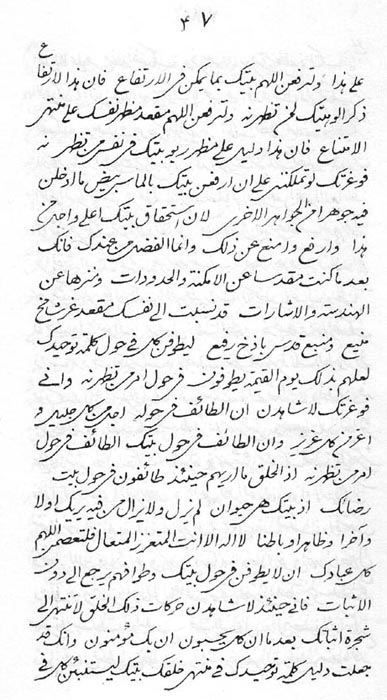 ۴۷
على هذا ولترفعن اللهم بيتك بما يمكن في الارتفاع فان هذا لارتفاع
ذكر الوهيتك لمن تظهرنه ولترفعن اللهم مقعد مظهر نفسك على منتهى
الامتناع فان هذا دليل على مظهر ربوبيتك في نفس من تظهرنه
فوعزتك لو تملكتني على ان ارفعن بيتك بالماس بيض ما ادخلن
فيه جوهرا من الجواهر الاخرى لان استحقاق بيتك اعلى واجل من
هذا وارفع وامنع عن ذلك وانما الفضل من عندك فانك
بعد ما كنت مقدسا عن الامكنة والحدودات ومنزها عن
الهندسة والاشارات قد نسبت الى نفسك مقعد عز شامخ
منيع ومنبع قدس باذخ رفيع ليطوفن كل في حول كلمة توحيدك
لعلهم بذلك يوم القيمة يطوفون في حول امر من تظهرنه وانني
فوعزتك لاشاهدن ان الطائف في حوله اجل من كل جليل و
اعز من كل عزيز وان الطائف في حول بيتك الطائف في حول
امر من تظهرنه اذ الخلق ما اريهم حينئذ طائفون في حول بيت
رضائك اذ بيتك هي حيوان لم تزل ولا يزال من فيه يريك اولا
وآخرا وظاهرا وباطنا لا اله الا انت المتعزز المتعال فلتعصمن اللهم
كل عبادك ان لا يطوفن في حول بيتك وطوافهم يرجع الى دون
الاثبات فاني حينئذ لاشاهدن حركات ذلك الخلق لا تنتهى الى
شجرة اثباتك بعد ما ان كل يحسبون ان بك مؤمنون وانك قد
جعلت دليل كلمة توحيدك في منتهى خلقك بيتك ليستنبئن كل في